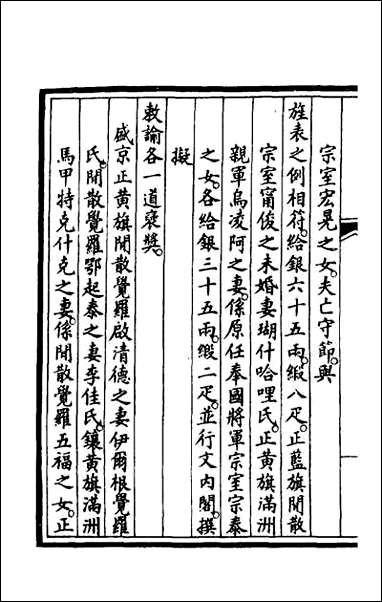 宗室宏晃之女夫亡守節與
旌表之例相符給銀六十五兩緞八疋正藍旗閒散
宗室甯俊之未婚妻瑚什哈哩氏正黃旗滿洲
親軍烏凌阿之妻係原任奉國將軍宗室宗泰
之女各給銀三十五兩緞二疋並行文內閣撰
擬
敕諭各一道襃獎
盛京正黃旗閒散覺羅啟清德之妻伊爾根覺羅
氏閒散覺羅鄂起泰之妻李佳氏鑲黃旗滿洲
馬甲特克什克之妻係閒散覺羅五福之女正